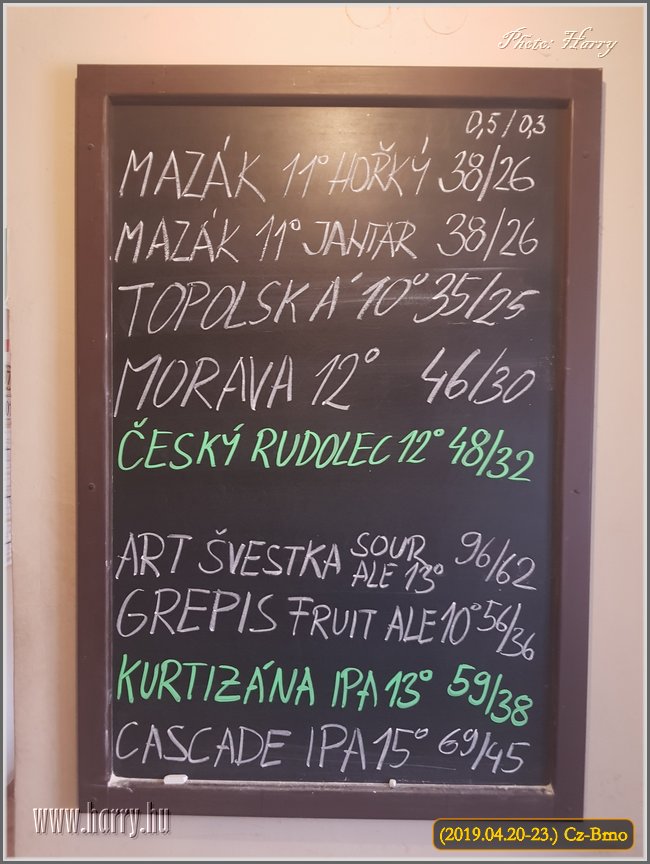 Photo: Harry
0,5/0,3
MAZÁK 11° HOŘKÝ 38/26
MAZÁK 11° JANTAR 38/26
TOPOLSKÁ 10° 35/25
MORAVA 12° 46/30
ČESKÝ RUDOLEC 12° 48/32
ART ŠVESTKA SOUR ALE 13° 96/62
GREPIS FRUIT ALE 10° 56/36
KURTIZÁNA IPA 13° 59/38
CASCADE IPA 15° 69/45
www.harry.hu
(2019.04.20-23.) Cz-Brno